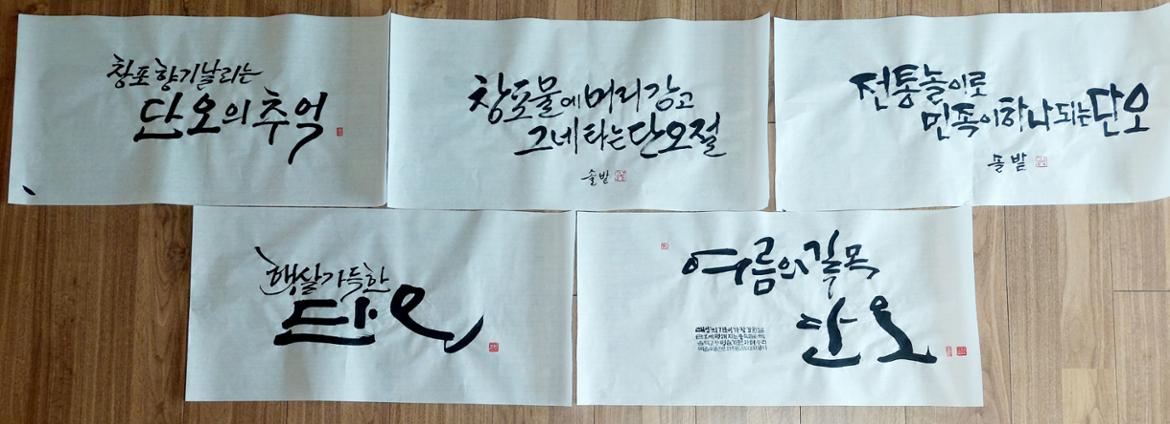 창포 향기 날리는
단오의 추억
창포물에 머리 감고
그네 타는 단오절
솔밭
전통놀이로
민족이 하나 되는 단오
솔밭
햇살 가득한
단오
여름의 길목
단오